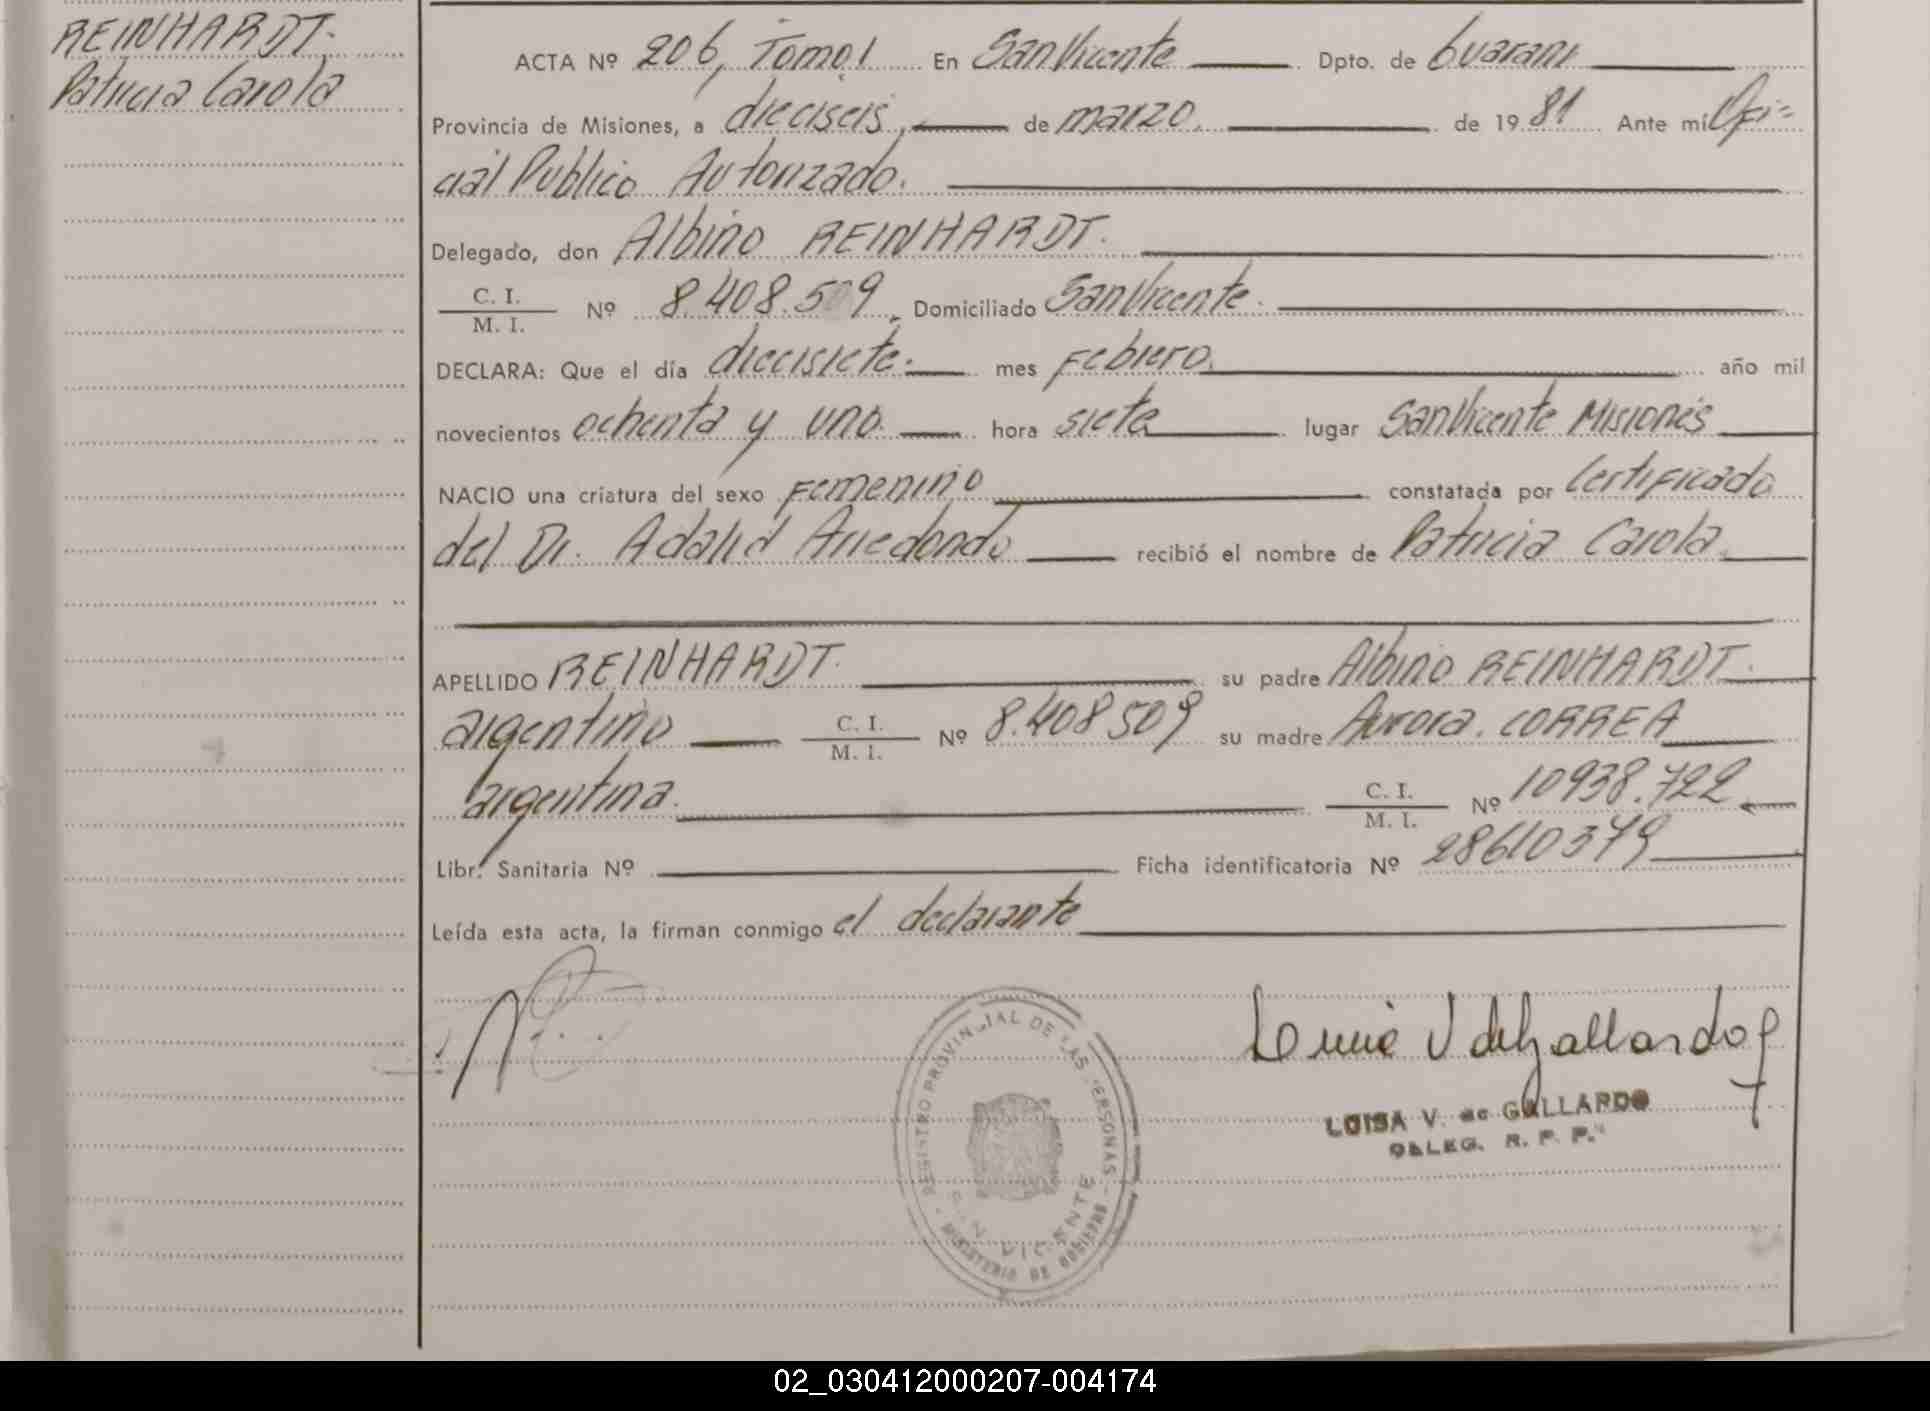 REINHARDT.
Patricia Carola
ACTA Nº 206, Tomo I En San Vicente Dpto. de Guarani
Provincia de Misiones, a dieciseis, de marzo. de 1981 Ante mí Ofi=
cial Publico Autorizado.
Delegado, don Albino REINHARDT.
C. I.
M. I. Nº 8.408.509, Domiciliado San Vicente.
DECLARA: Que el día diecisiete. mes Febrero. año mil
novecientos ochenta y uno. hora siete lugar San Vicente Misiones
NACIO una criatura del sexo Femenino constatada por Certificado
del Dr. Adalid Arredondo recibió el nombre de Patricia Carola.
APELLIDO REINHARDT. su padre Albino REINHARDT.
argentino C. I.
M. I. Nº 8.408509 su madre Aurora. CORREA
argentina. C. I.
M. I. Nº 10938.722
Libr. Sanitaria Nº Ficha identificatoria Nº 28610379
Leída esta acta, la firman conmigo el declarante
REGISTRO PROVINCIAL DE LAS PERSONAS
SAN VICENTE
MINISTERIO DE GOBIERNO
V de Gallardo
LUISA V. de GALLARDO
DELEG. R. P. P.
02_030412000207-004174